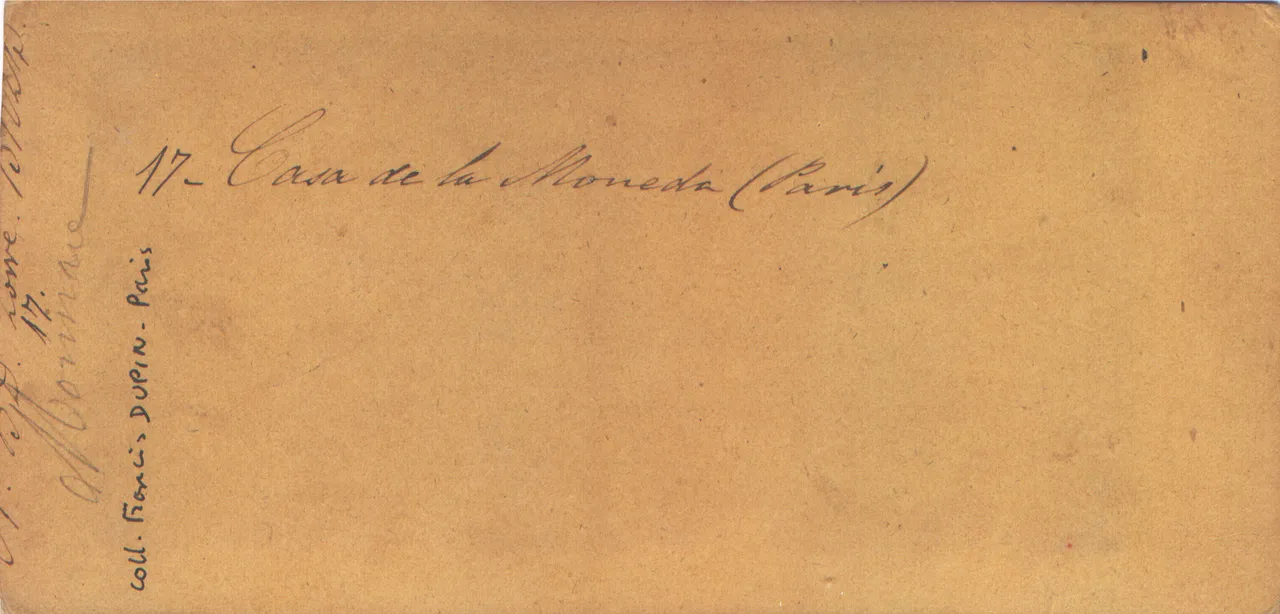 17- Casa de la Moneda (Paris)
coll. Francis DUPIN - Paris
Monnaie
17.